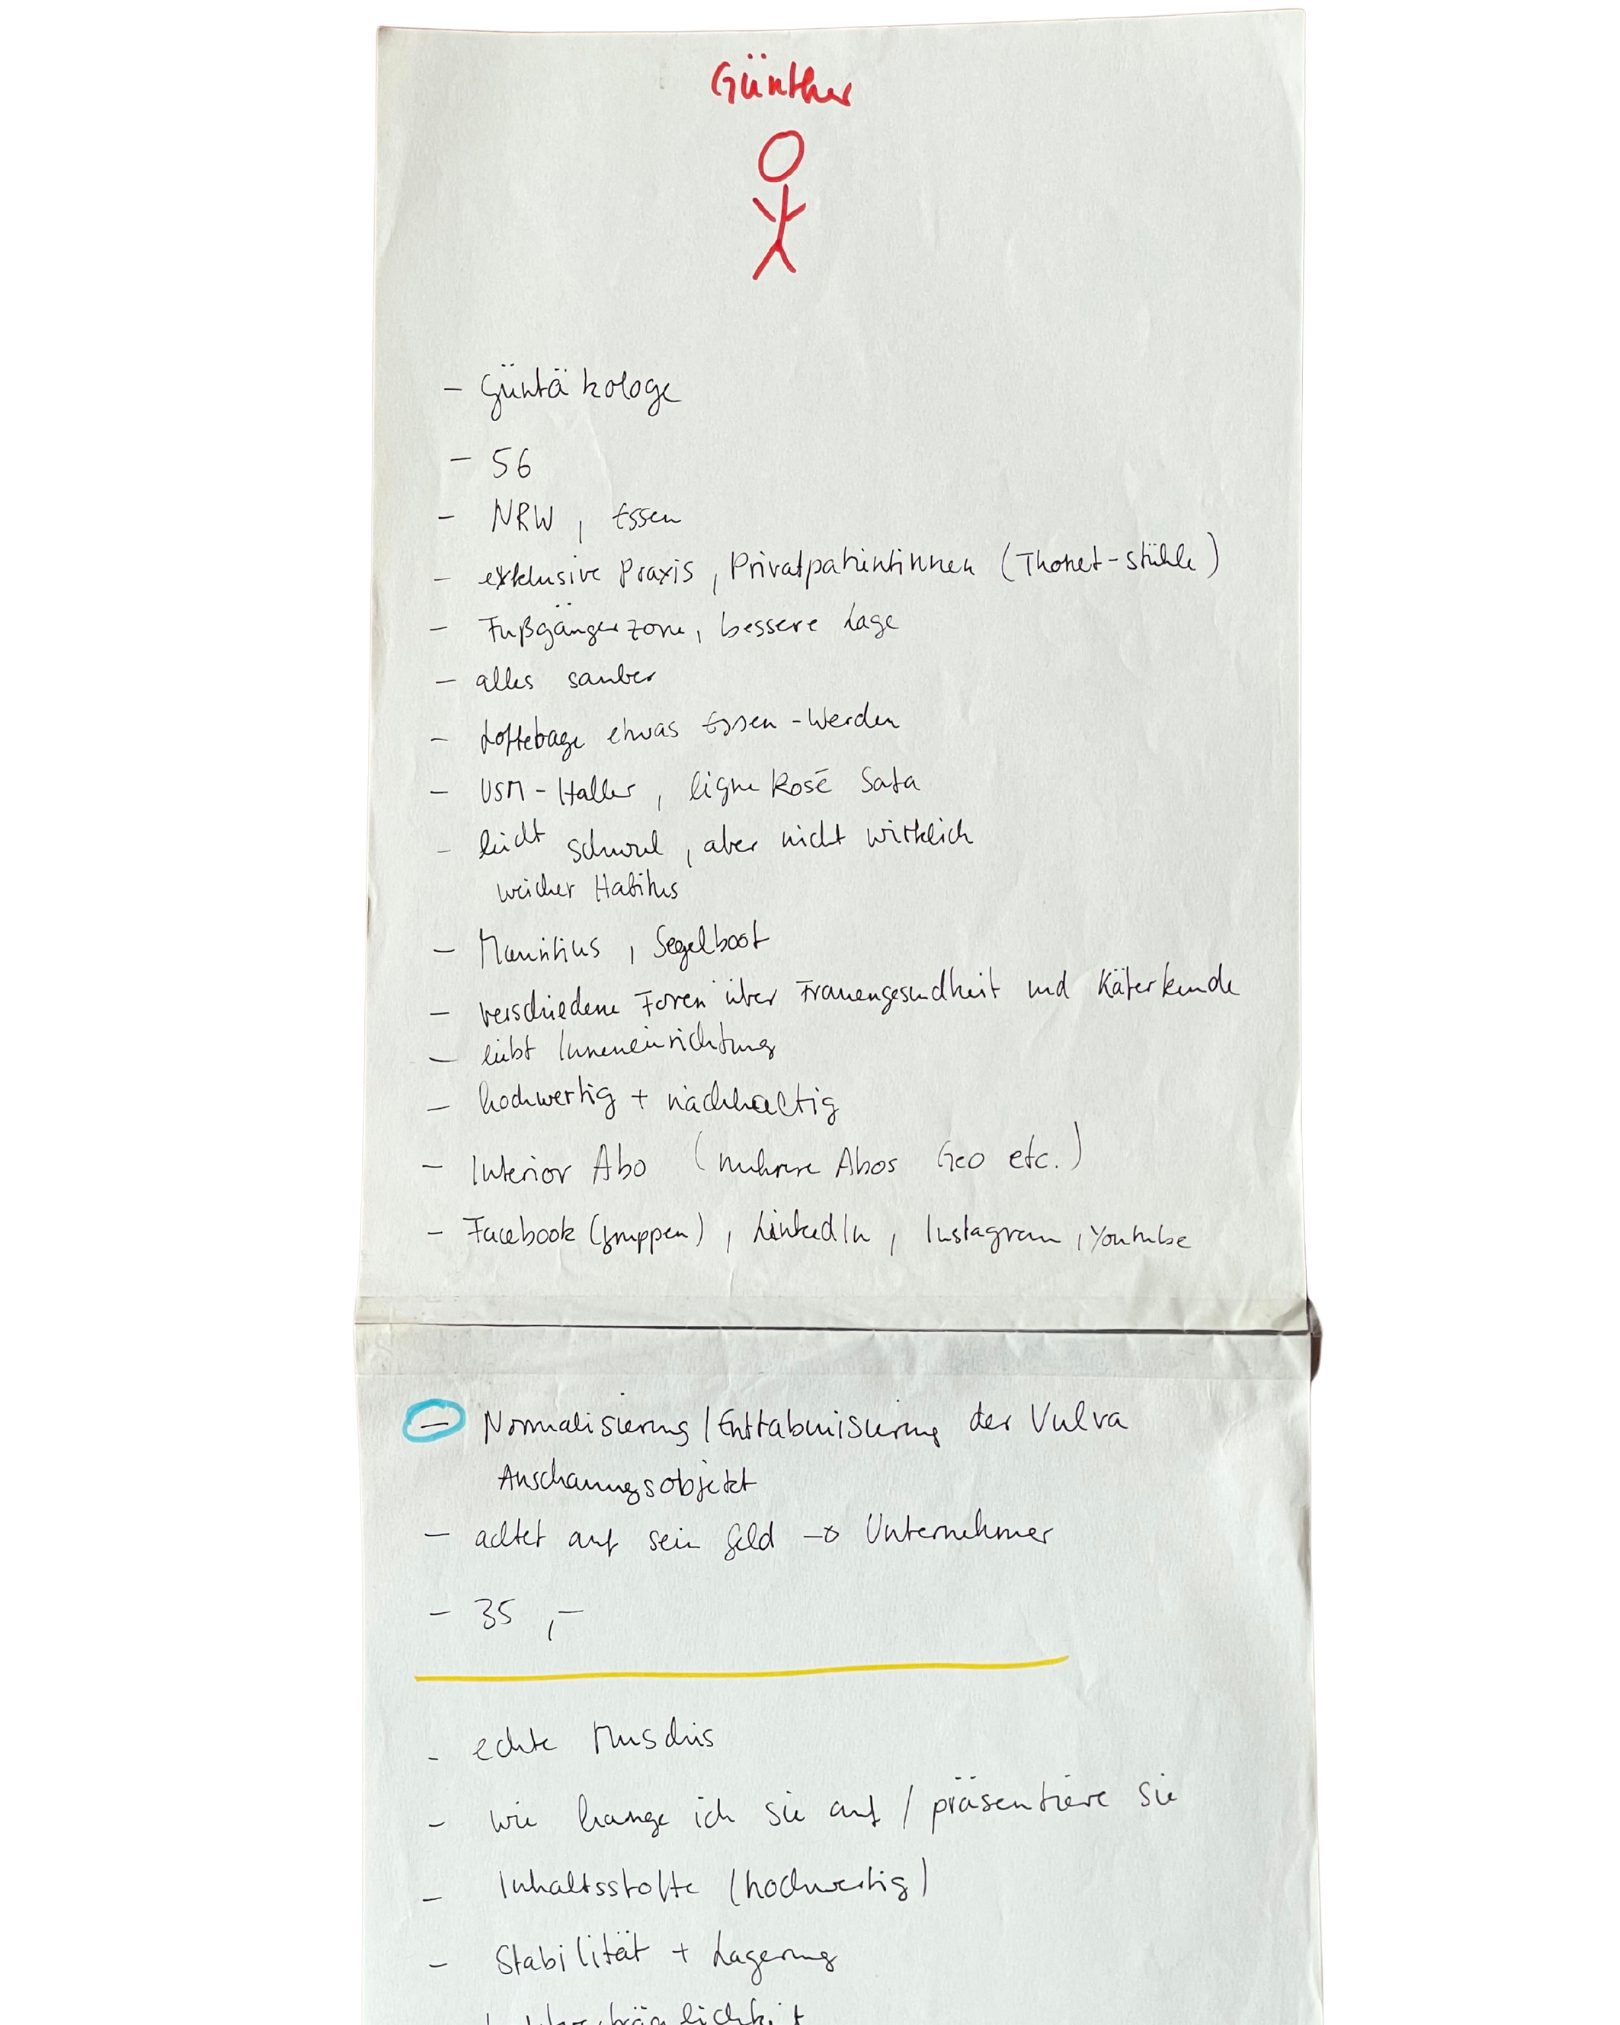 Günther
- Güntäkologe
- 56
- NRW, Essen
- exklusive Praxis, Privatpatientinnen (Thonet-stühle)
- Fußgängerzone, bessere Lage
- alles sauber
- Loftetage etwas Essen-Werden
- USM-Haller, ligne Rosé Sofa
- leicht schwul, aber nicht wirklich
weicher Habitus
- Mauritius, Segelboot
- verschiedene Foren über Frauengesundheit und Käferkunde
- liebt Inneneinrichtung
- hochwertig + nachhaltig
- Interior Abo (mehrere Abos Geo etc.)
- Facebook (gruppen), LinkedIn, Instagram, Youtube
- Normalisierung/Enttabuisierung der Vulva
Anschauungsobjekt
- achtet auf sein Geld → Unternehmer
- 35,-
- echte Muschis
- wie hänge ich sie auf / präsentiere sie
- Inhaltsstoffe (hochwertig)
- Stabilität + Lagerung